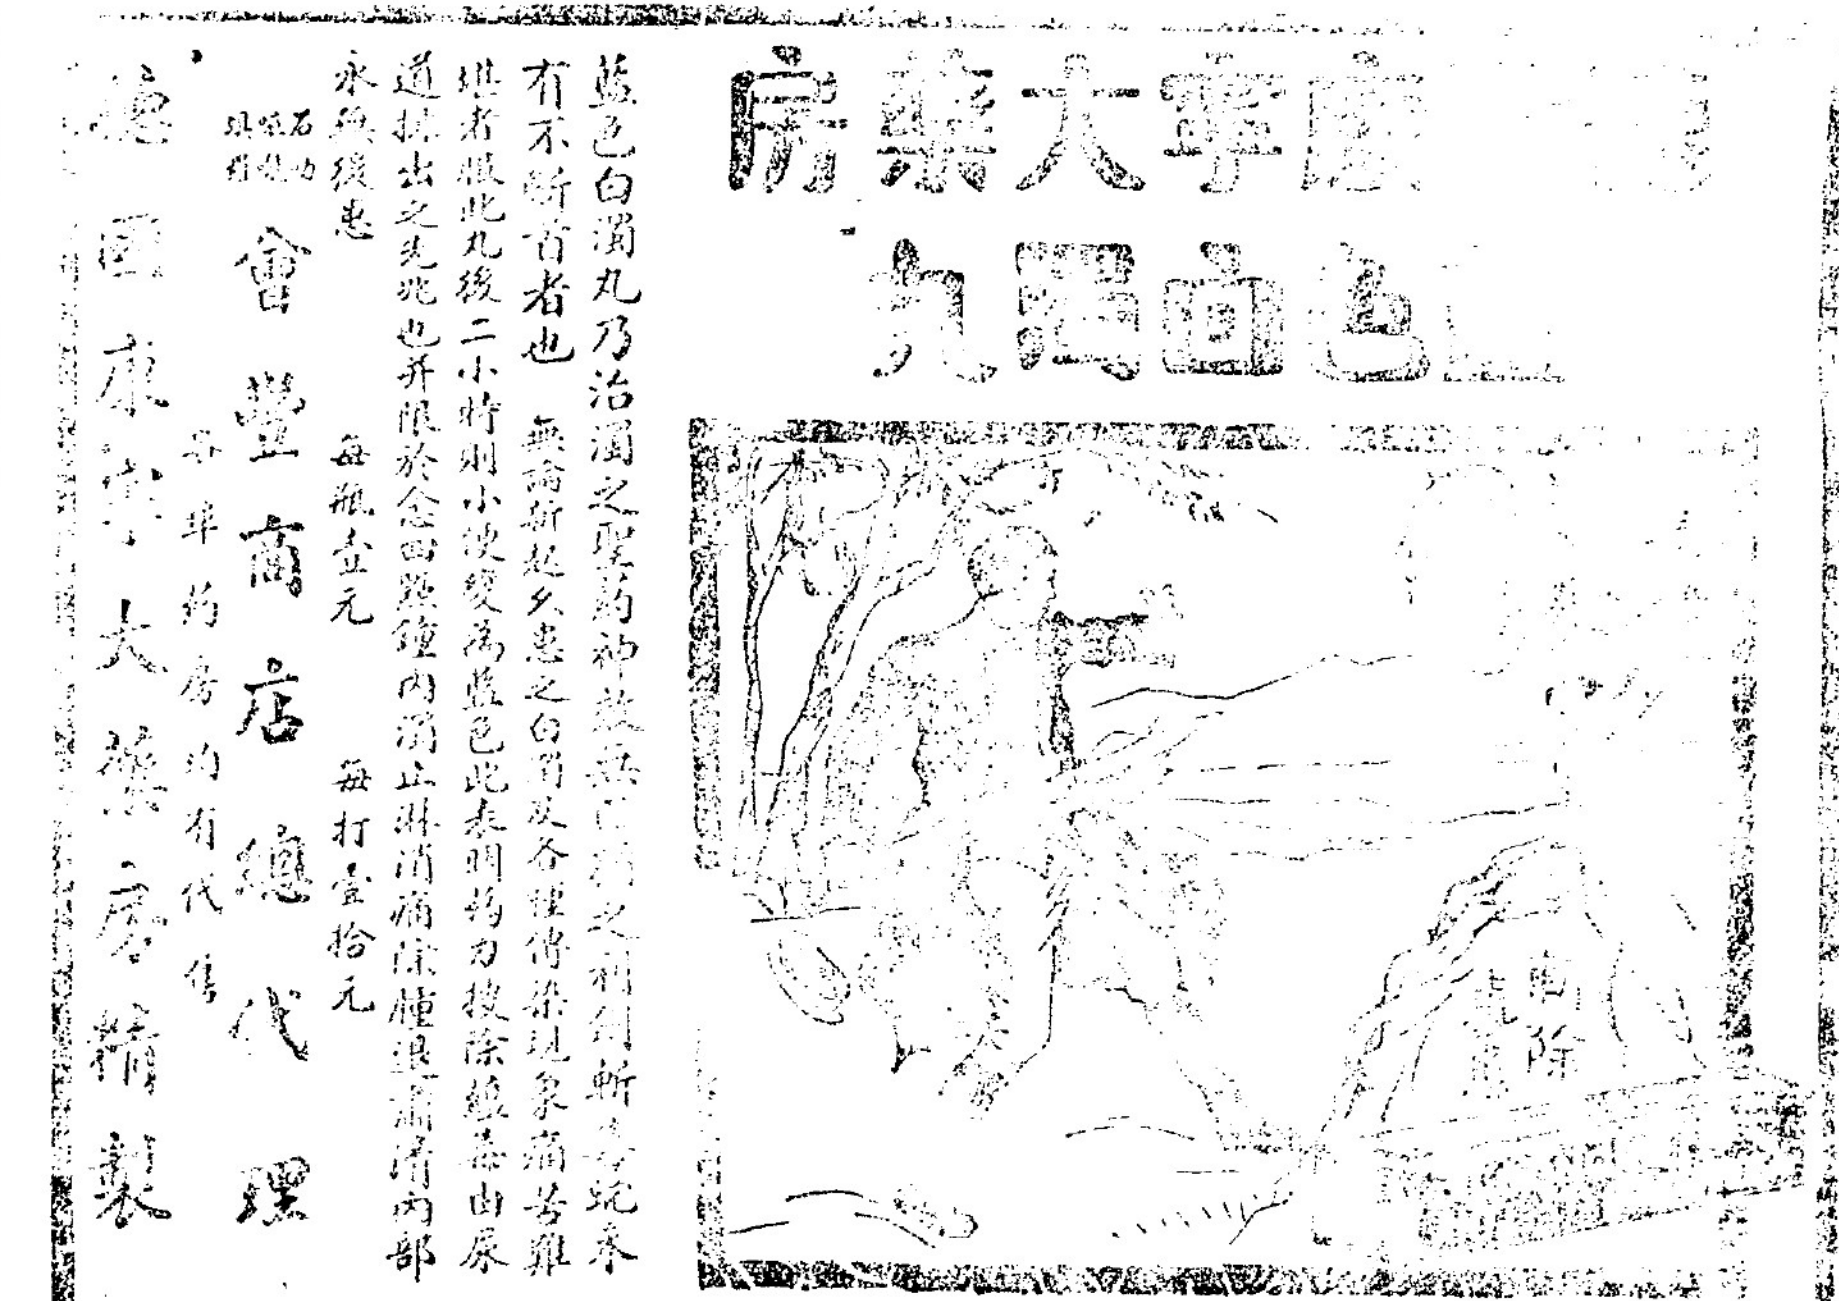 康寧大藥房
色白濁丸
藍色白濁丸乃治濁之聖药神效無之利劍斬蛇永
有不斷首者也 無論新起久患之白濁及各種傳染現象痛苦難
堪者服此丸後二小時則小便變為藍色此表明药力搜除餘毒由尿
道排出之先兆也并限於念四點鐘內濁止淋消痛除腫退肅清內部
永無後患 每瓶壹元 每打壹拾元
石叻
會豐商店總代理
药房均有代售
德國康寧大藥房精製